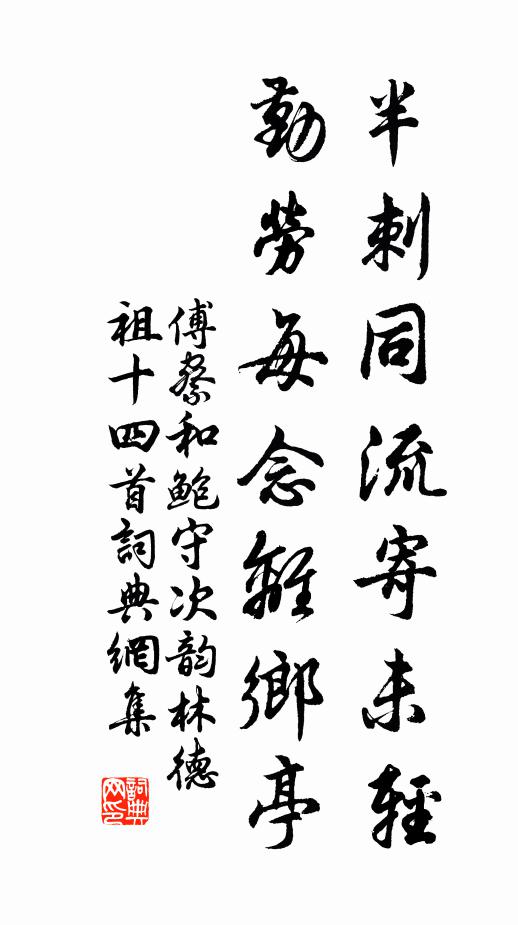 半刺同流寄未輕
勤勞每念離鄉亭
傅察和鮑守次韵林德
祖十四首詞典網集
詞典網印